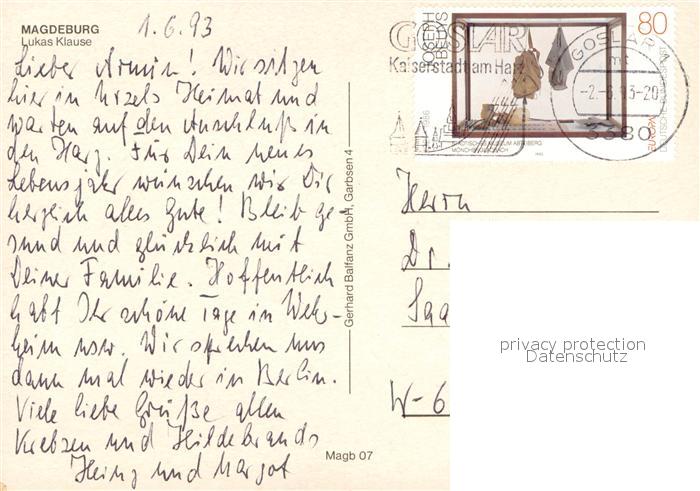 MAGDEBURG
Lukas Klause
1.6.93
Lieber Armin! Wir sitzen
hier in Heimat und
warten auf den Anschluß in
den Harz. Für Dein neues
Lebensjahr wünschen wir Dir
herzlich alles Gute! Bleib ge-
sund und glücklich mit
Deiner Familie. Hoffentlich
habt Ihr schöne Tage in
heim usw. Wir sprechen uns
dann mal wieder in Berlin.
Viele liebe Grüße allen
Krebsen und Hildebrands
Heinz und Margot
Gerhard Balfanz GmbH, Garbsen 4
Magb 07
GOSLAR
Kaiserstadt am Harz
JOSEPH
BEUYS
80
DEUTSCHE BUNDESPOST
EUROPA
STÄDTISCHES MUSEUM ABTEIBERG
MÖNCHENGLADBACH
1993
GOSLAR 1
mt
-2.-6.93-20
3380
Herrn
Dr.
Saa
W-6
privacy protection
Datenschutz